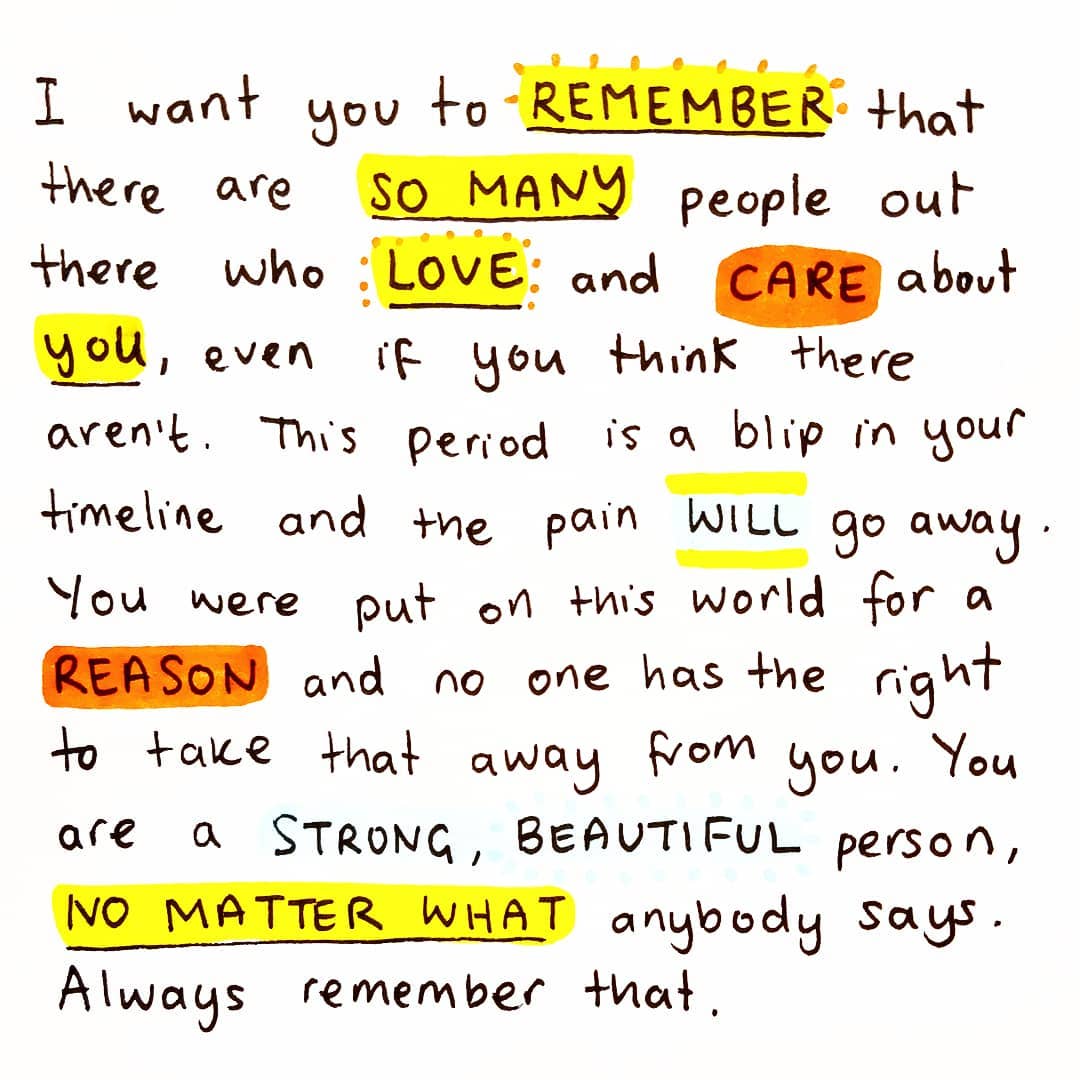 I want you to REMEMBER that
there are SO MANY people out
there who LOVE and CARE about
you, even if you think there
aren't. This period is a blip in your
timeline and the pain WILL go away.
You were put on this world for a
REASON and no one has the right
to take that away from you. You
are a STRONG, BEAUTIFUL person,
NO MATTER WHAT anybody says.
Always remember that.